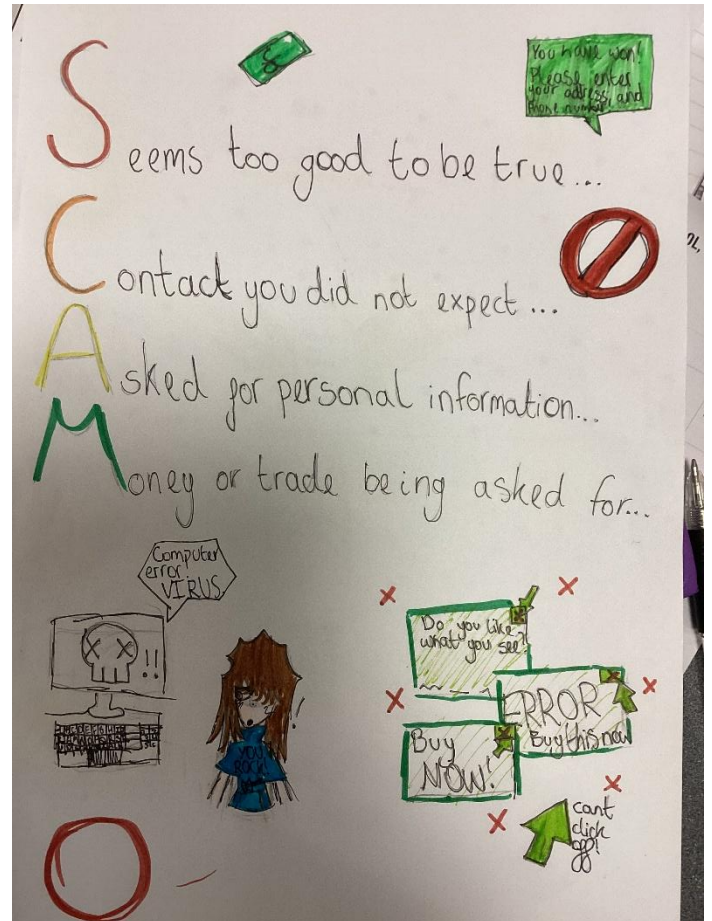 You have won!
Please enter
your address, and
Phone number
Seems too good to be true...
Contact you did not expect...
Asked for personal information...
Money or trade being asked for...
Computer
error.
VIRUS
!!
YOU
ROCK!
Do you like
what you see?
ERROR
Buy this now
Buy
NOW!
cant
click
off!